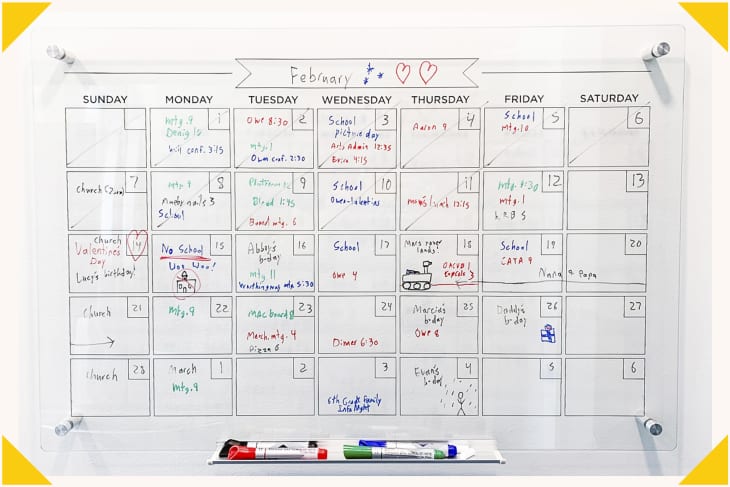 February
SUNDAY MONDAY TUESDAY WEDNESDAY THURSDAY FRIDAY SATURDAY
mtg. 9 1
will conf. 3:15
Owe 8:30 2
mtg. 1
Owen conf. 2:30
School 3
picture day
Arts Admin 12:35
Erica 4:15
Aaron 9 4
School 5
Mtg. 10
6
church (Zoom) 7
mtg 9 8
nails 3
School
9
Blend 1:45
Board mtg. 6
School 10
Owen-valentines
11
mom's lunch 12:15
mtg. 9:30 12
mtg. 1
13
church 14
Valentines
Day
Lucy's birthday!
No School 15
Woo!
Abbey's 16
b-day
mtg 11
Worthingway mtg 5:30
School 17
Owe 4
Mars rover 18
lands!
School 19
CATA 9
20
Nana & Papa
21
Church
mtg. 9 22
MAC board 8 23
March. mtg. 4
Pizza 6
24
Dinner 6:30
25
Marcia's
b-day
Owe 8
Daddy's 26
b-day
27
28
Church
March 1
mtg. 9
2
3
6th Grade Family
Info Night
4
Evan's
b-day
5
6